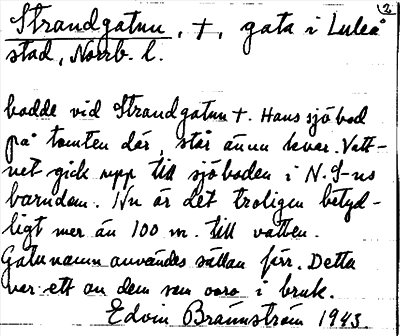 2
Strandgatun, +, gata i Luleå
stad, Norrb. l.
bodde vid Strandgatun +. Hans sjöbod
på tomten där, står ännu kvar. Vatt-
net gick upp till sjöboden i N. J-ns
barndom. Nu är det troligen betyd-
ligt mer än 100 m. till vatten.
Gatunamn användes sällan förr. Detta
var ett av dem som voro i bruk.
Edvin Brännström 1943.